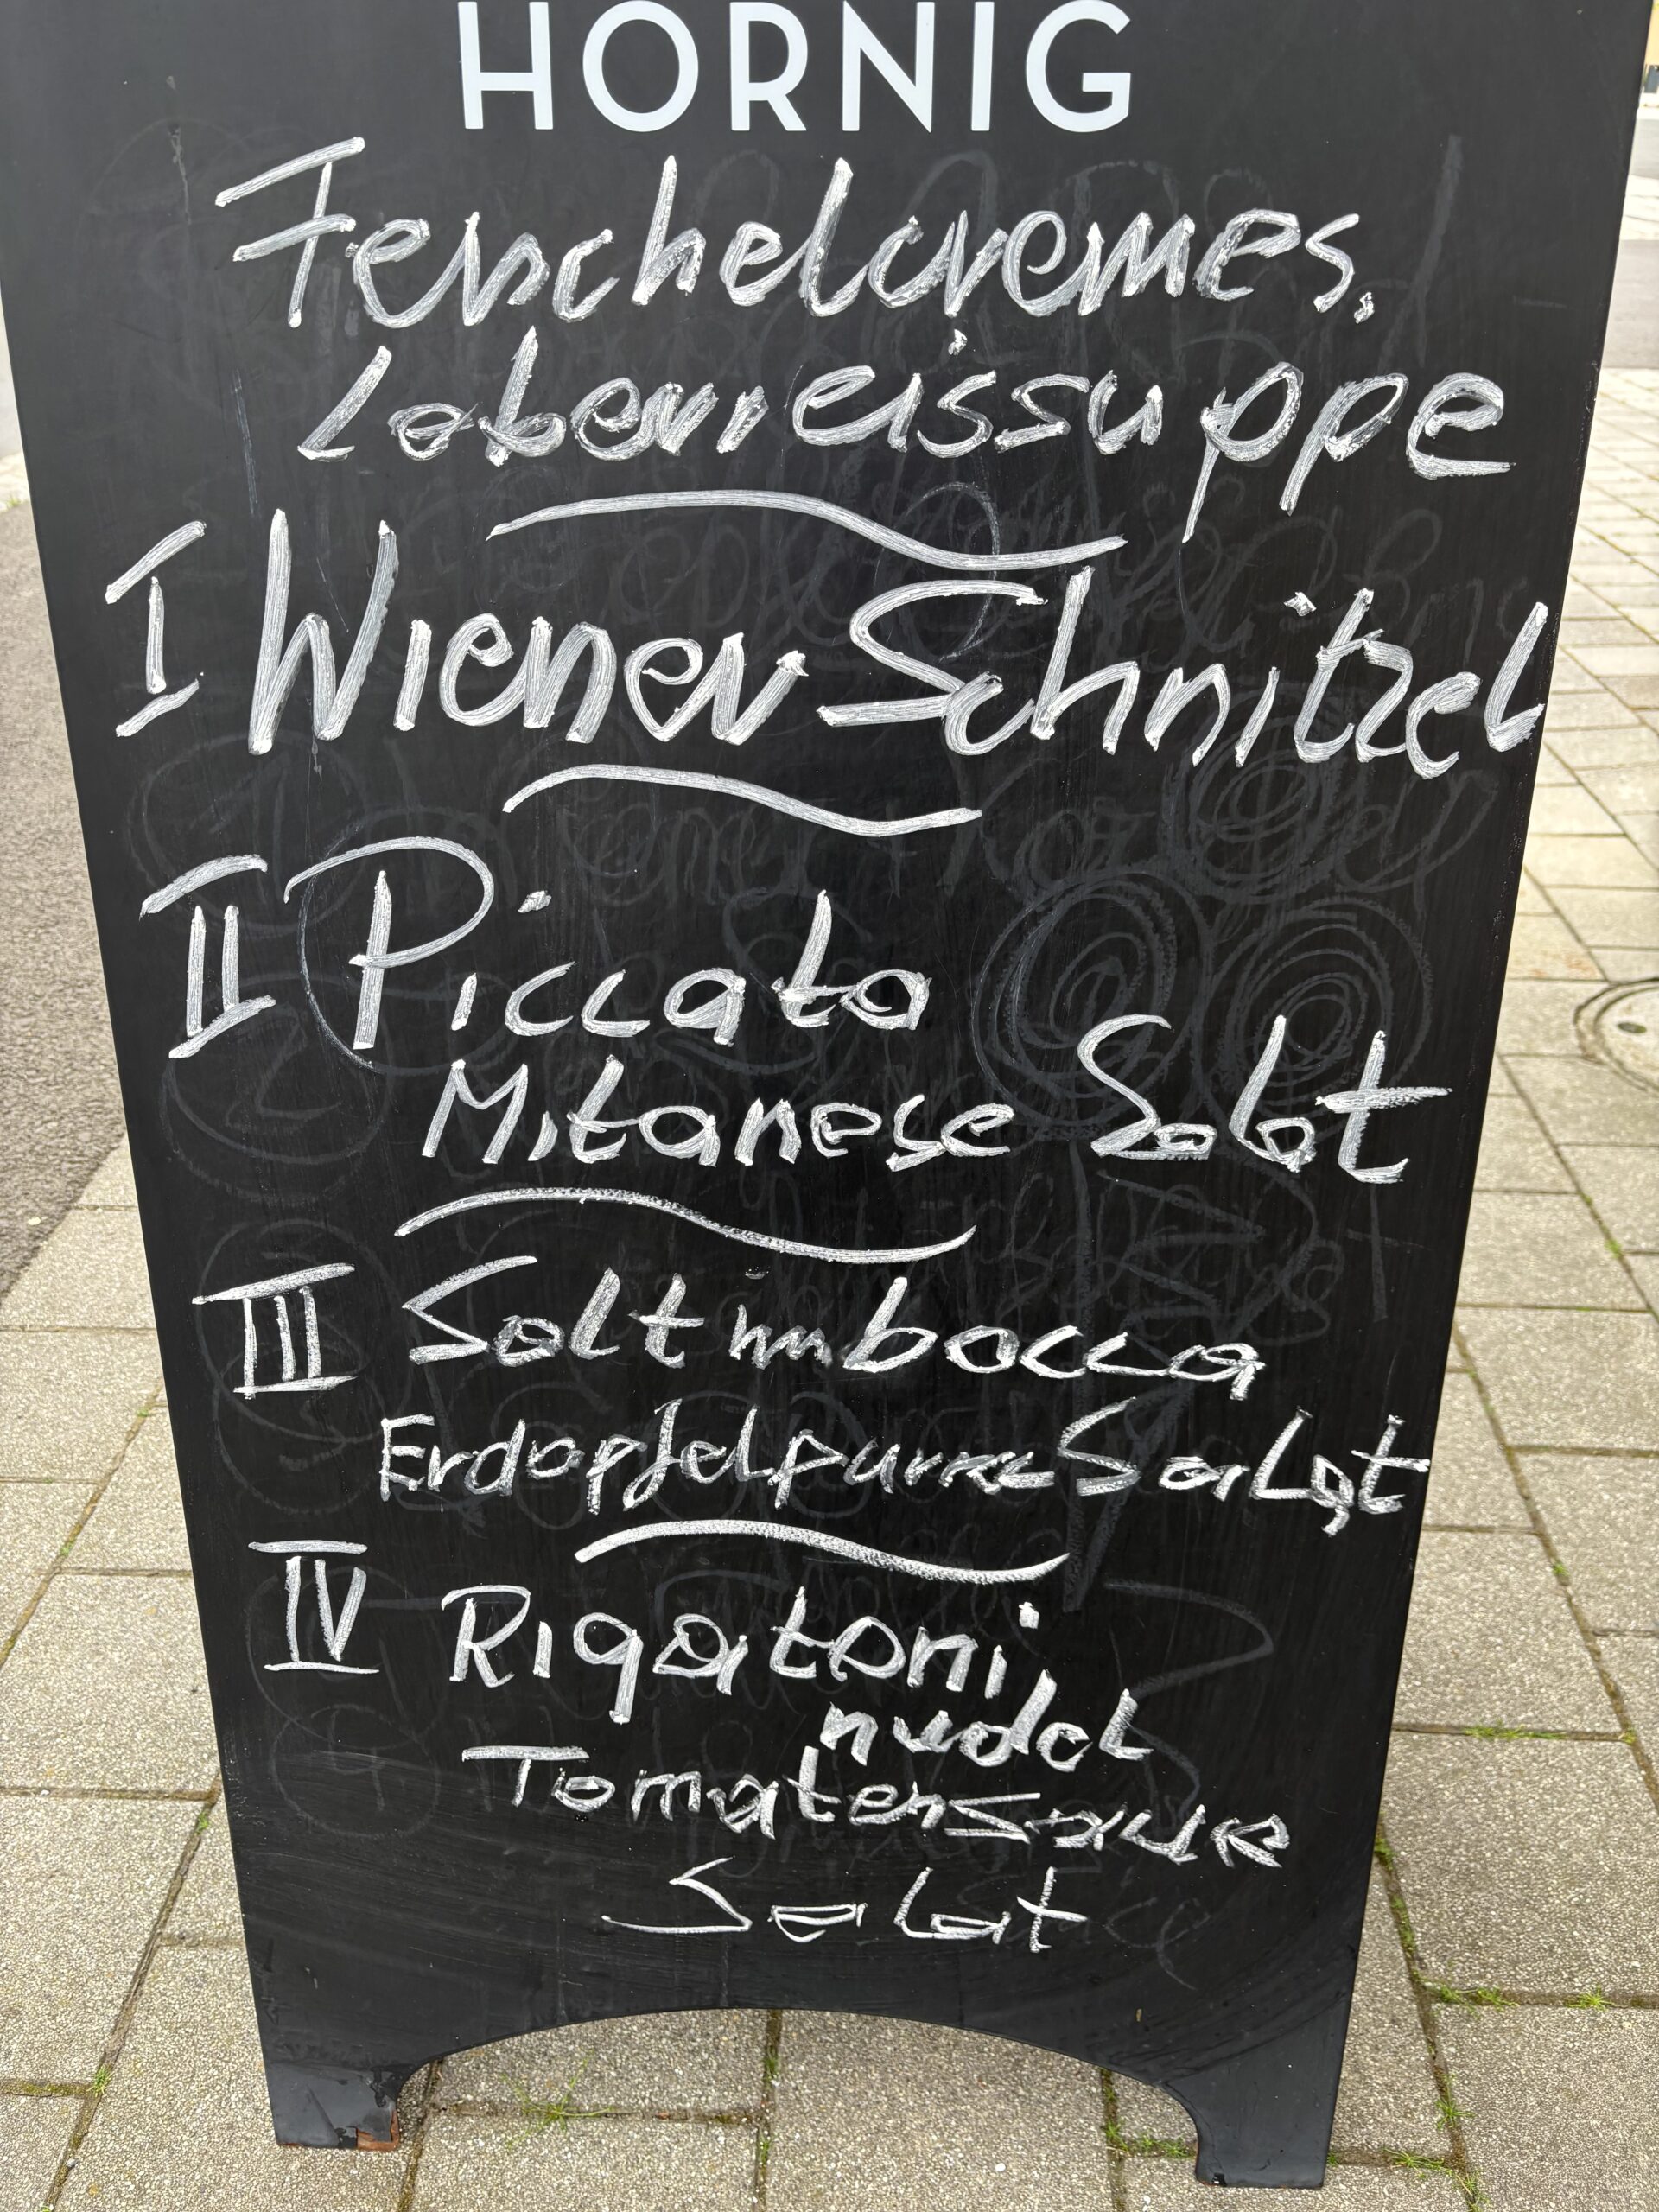 HORNIG
Fenchelcremes.
Leberreissuppe
I Wiener Schnitzel
II Piccata
Milanese Salat
III Saltimbocca
Erdapfelpurree Salat
IV Rigatoni
nudel
Tomatensauce
Salat